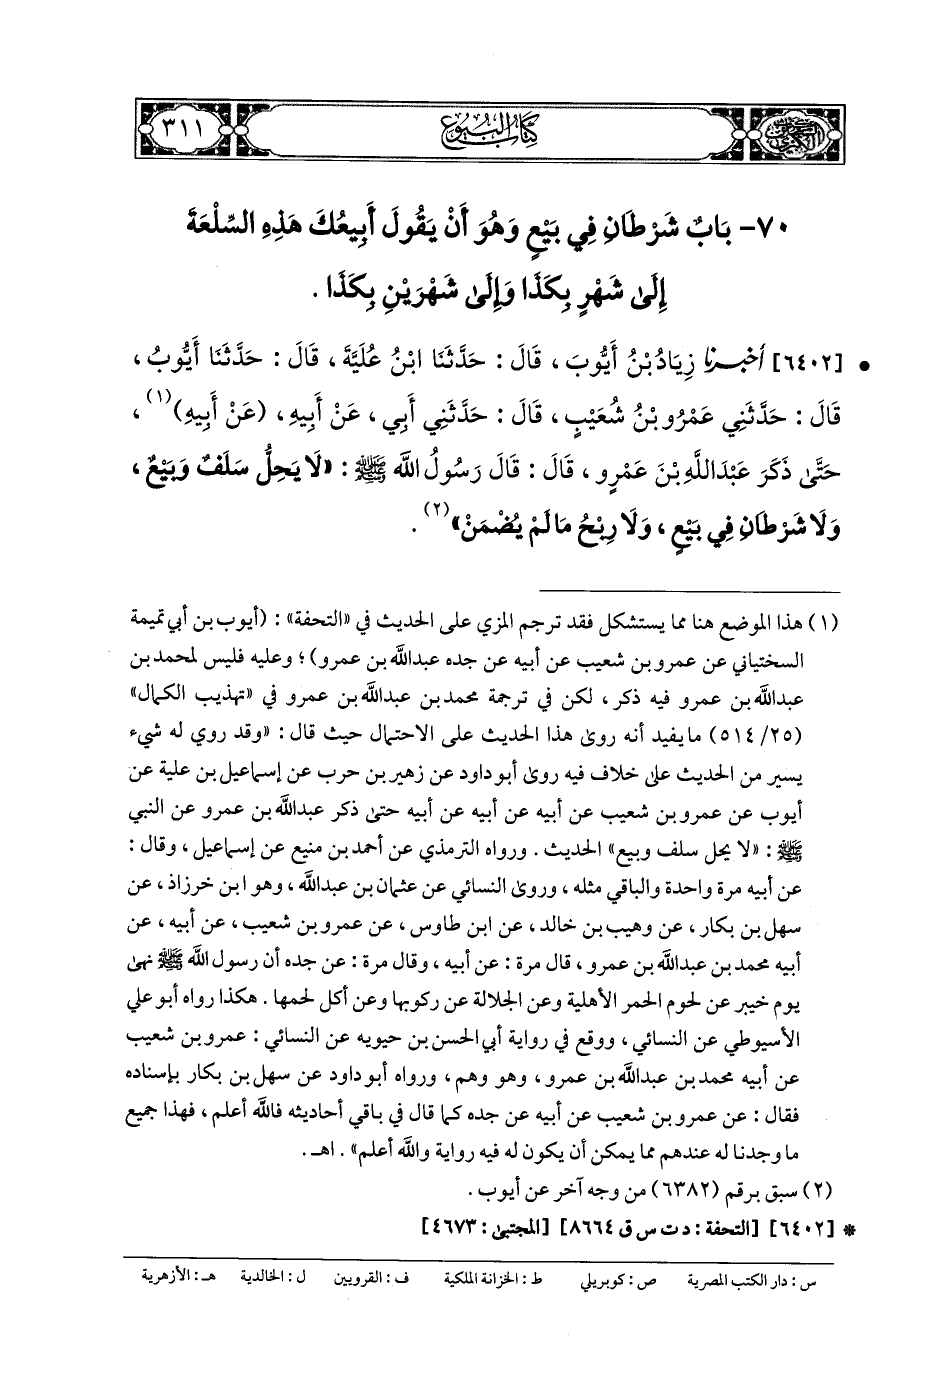 ٣١١
كتاب البيوع
السنن الكبرى
٧٠- بَابٌ شَرْطَانِ فِي بَيْعٍ وَهُوَ أَنْ يَقُولَ أَبِيعُكَ هَذِهِ السِّلْعَةَ
إِلَىٰ شَهْرٍ بِكَذَا وَإِلَىٰ شَهْرَيْنِ بِكَذَا .
• [٦٤٠٢] أخبرنا زِيَادُ بْنُ أَيُّوبَ ، قَالَ : حَدَّثَنَا ابْنُ عُلَيَّةَ ، قَالَ : حَدَّثَنَا أَيُّوبُ ،
قَالَ : حَدَّثَنِي عَمْرُو بْنُ شُعَيْبٍ ، قَالَ : حَدَّثَنِي أَبِي ، عَنْ أَبِيهِ ، (عَنْ أَبِيهِ)(١) ،
حَتَّىٰ ذَكَرَ عَبْدَاللَّهِ بْنَ عَمْرٍو ، قَالَ : قَالَ رَسُولُ اللَّهِ ﷺ : «لَا يَحِلُّ سَلَفٌ وَبَيْعٌ ،
وَلَا شَرْطَانِ فِي بَيْعٍ ، وَلَا رِبْحُ مَا لَمْ يُضْمَنْ»(٢) .
(١) هذا الموضع هنا مما يستشكل فقد ترجم المزي على الحديث في «التحفة» : (أيوب بن أبي تميمة
السختياني عن عمرو بن شعيب عن أبيه عن جده عبدالله بن عمرو)؛ وعليه فليس لمحمد بن
عبدالله بن عمرو فيه ذكر ، لكن في ترجمة محمد بن عبدالله بن عمرو في «تهذيب الكمال»
(٢٥/ ٥١٤) ما يفيد أنه روىٰ هذا الحديث على الاحتمال حيث قال : «وقد روي له شيء
يسير من الحديث على خلاف فيه روىٰ أبو داود عن زهير بن حرب عن إسماعيل بن علية عن
أيوب عن عمرو بن شعيب عن أبيه عن أبيه عن أبيه حتىٰ ذكر عبدالله بن عمرو عن النبي
ﷺ : «لا يحل سلف وبيع» الحديث . ورواه الترمذي عن أحمد بن منيع عن إسماعيل ، وقال :
عن أبيه مرة واحدة والباقي مثله ، وروىٰ النسائي عن عثمان بن عبدالله ، وهو ابن خرزاذ ، عن
سهل بن بكار ، عن وهيب بن خالد ، عن ابن طاوس ، عن عمرو بن شعيب ، عن أبيه ، عن
أبيه محمد بن عبدالله بن عمرو ، قال مرة : عن أبيه ، وقال مرة : عن جده أن رسول الله ﷺ نهىٰ
يوم خيبر عن لحوم الحمر الأهلية وعن الجلالة عن ركوبها وعن أكل لحمها . هكذا رواه أبو علي
الأسيوطي عن النسائي ، ووقع في رواية أبي الحسن بن حيويه عن النسائي : عمرو بن شعيب
عن أبيه محمد بن عبدالله بن عمرو ، وهو وهم ، ورواه أبو داود عن سهل بن بكار بإسناده
فقال : عن عمرو بن شعيب عن أبيه عن جده كما قال في باقي أحاديثه فالله أعلم ، فهذا جميع
ما وجدنا له عندهم مما يمكن أن يكون له فيه رواية والله أعلم» . اهـ .
(٢) سبق برقم (٦٣٨٢) من وجه آخر عن أيوب .
* [٦٤٠٢] [التحفة : د ت س ق ٨٦٦٤] [المجتبىٰ : ٤٦٧٣]
س : دار الكتب المصرية ص : كوبريلي ط : الخزانة الملكية ف : القرويين ل : الخالدية هـ : الأزهرية